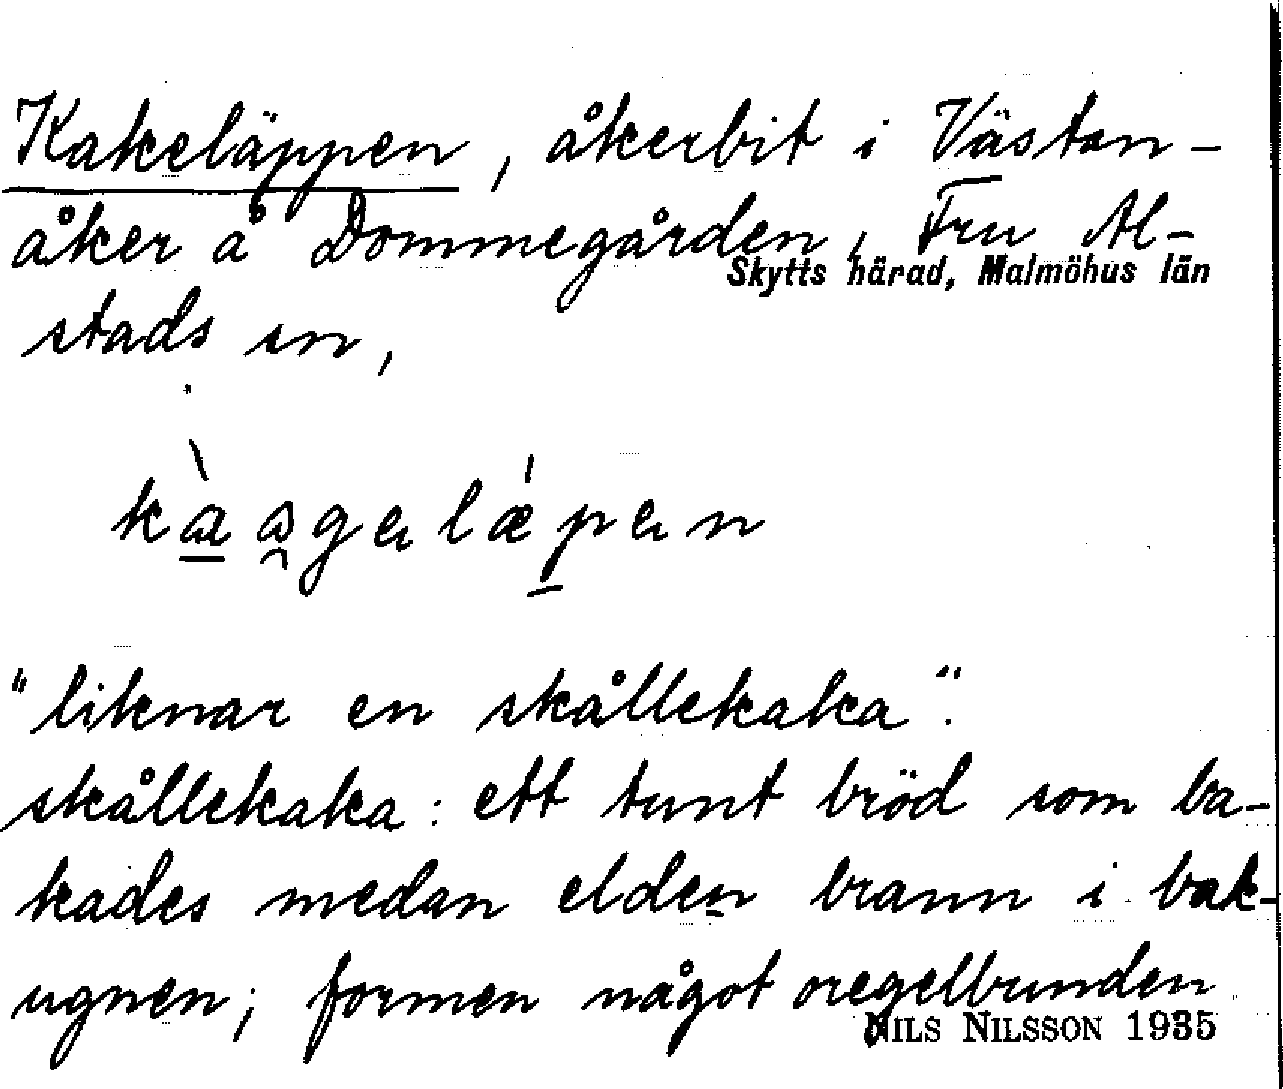 Kakeläppen, åkerbit i Västan-
åker å Dommegården, Fru Al-
Skytts härad, Malmöhus län
stads sn,
kàa̯gəlǽpən
"liknar en skållekaka".
skållekaka: ett tunt bröd som ba-
kades medan elden brann i bak-
ugnen; formen något oregelbunden
NILS NILSSON 1935